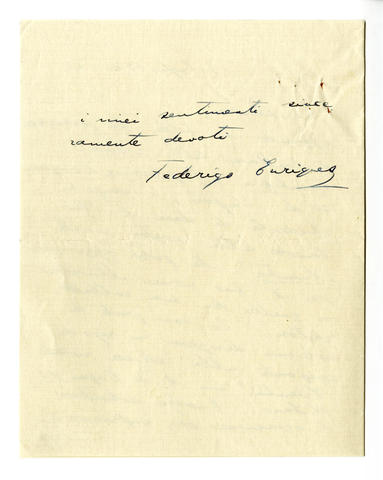 i miei sentimenti since
ramente devoti
Federigo Enriques